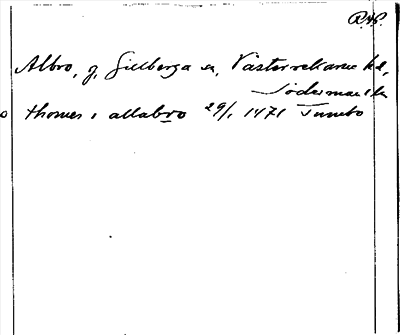 R.A.P.
Albro, g, Gillberga sn, Västerrekarne hd,
Södermanl
o thomes i allabro 29/1 1471 Tuneto